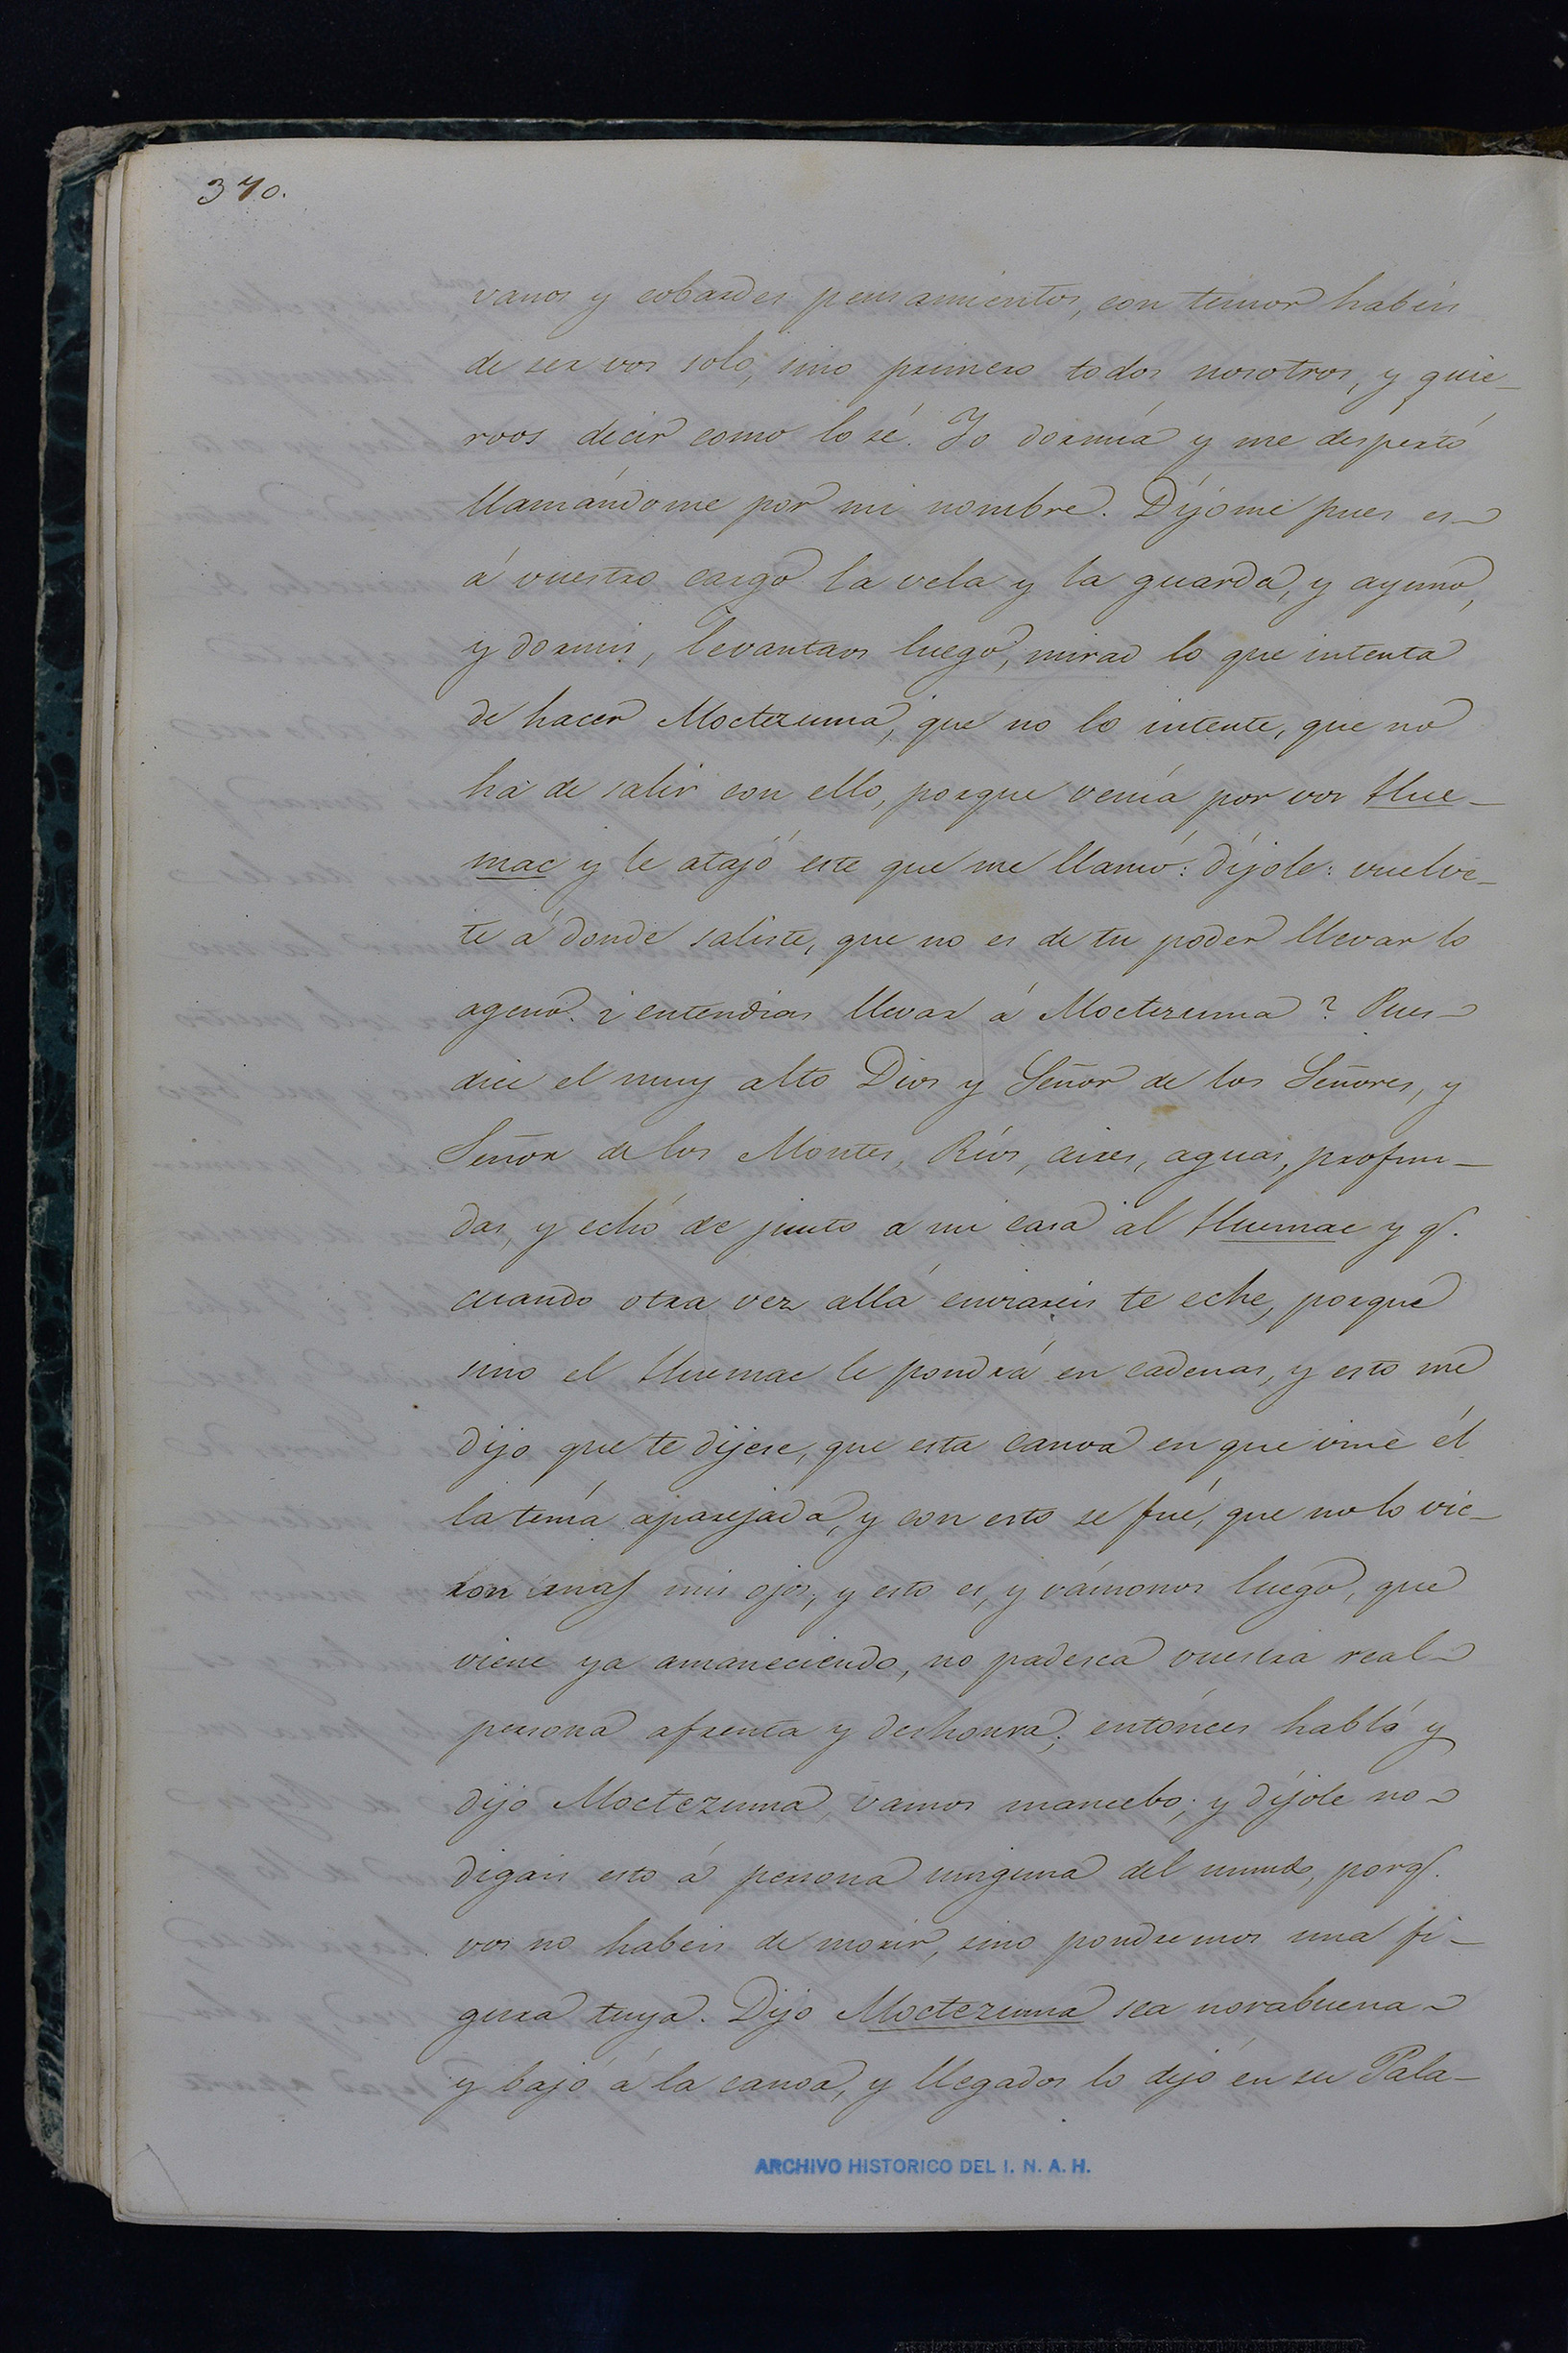 370.
vanos y cobardes pensamientos, con temor habeis
de ser vos solo, sino primero todos nosotros, y quie-
roos decir como lo sé. Yo dormía y me despertó
llamándome por mi nombre. Díjome pues es
á vuestro cargo la vela y la guarda, y ayuno,
y dormis, levantaos luego, mirad lo que intenta
de hacer Moctezuma, que no lo intente, que no
ha de salir con ello, porque venía por vos Hue-
mac y le atajó este que me llamó: díjole: vuelve-
te á donde saliste, que no es de tu poder llevar lo
ageno. ¿entendias llevar á Moctezuma? Pues
dice el muy alto Dios y Señor de los Señores, y
Señor de los Montes, Ríos, aires, aguas, profun-
das, y echó de junto a mi casa al Huemac y q.
cuando otra vez allá enviareis te eche, porque
sino el Huemac le pondrá en cadenas, y esto me
dijo que te dijese, que esta canoa en que vine él
la tenía aparejada, y con esto se fué, que no lo vie-
ron mas mis ojos, y esto es, y vámonos luego, que
viene ya amaneciendo, no padesca vuestra real
persona afrenta y deshonra; entónces habló y
dijo Moctezuma, vamos mancebo; y díjole no
digais esto á persona ninguna del mundo, porq.
vos no habeis de morir, sino pondremos una fi-
gura tuya. Dijo Moctezuma sea norabuena
y bajó á la canoa, y llegados lo dejó en su Pala-
ARCHIVO HISTORICO DEL I. N. A. H.